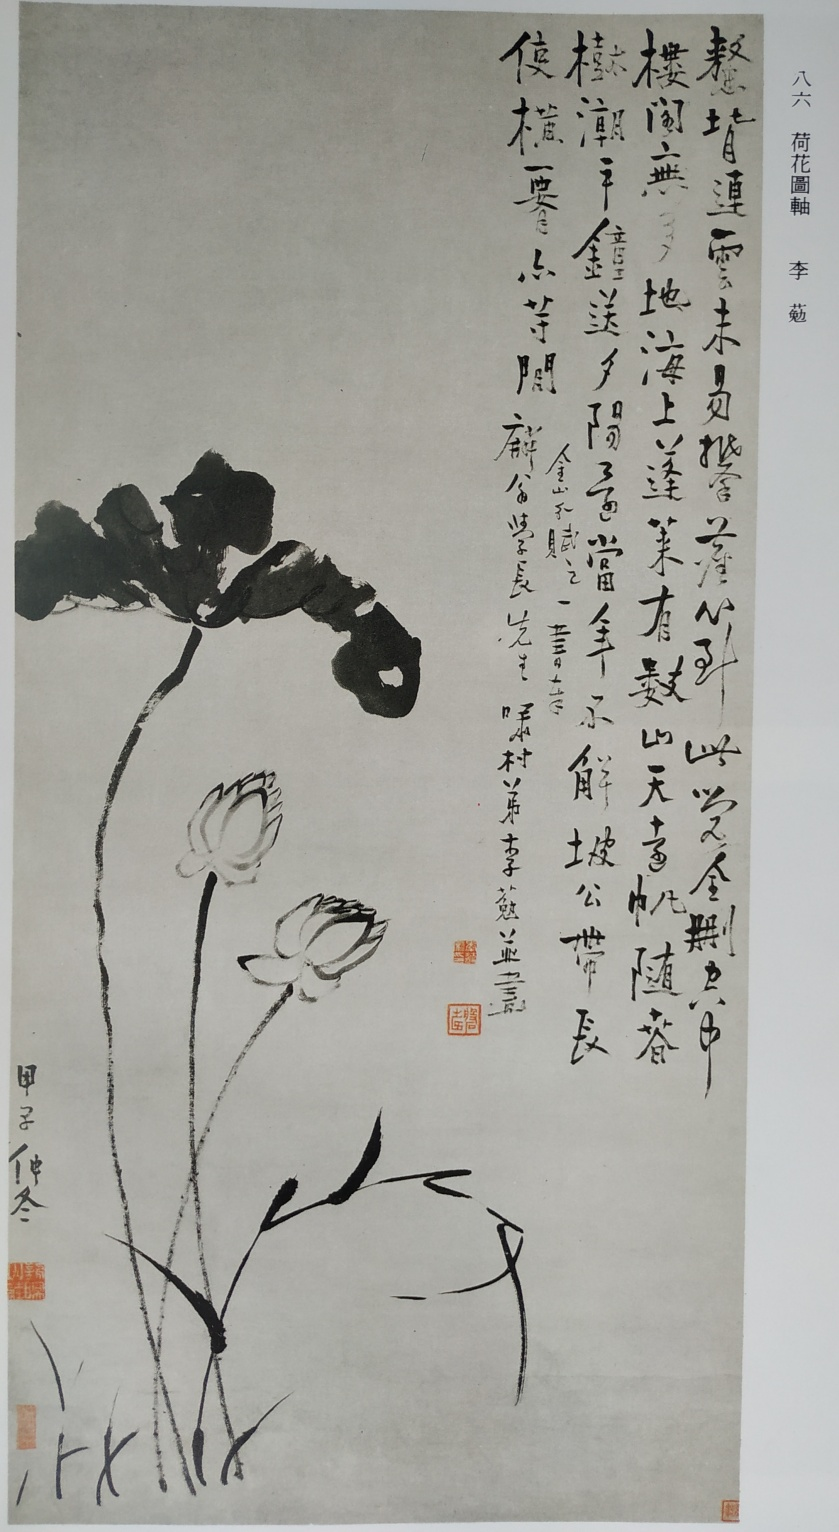 八六 荷花圖軸 李葂
鼇背連雲未易攀心到此覺全刪中
樓閣無多地海上蓬萊有數山天遠帆隨春
樹潮平鐘送夕陽還當年不解坡公帶長
使橫腰亦等閒
金山賦之一書奉
麟翁學長先生 嘯村弟李葂並畫
甲子仲冬